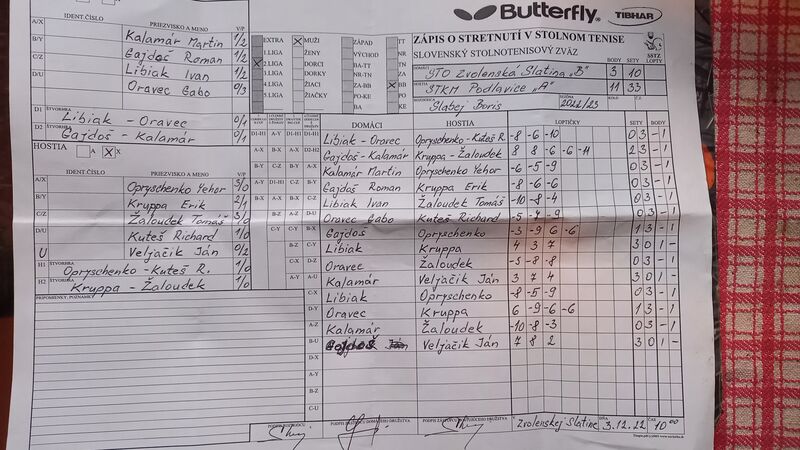 Butterfly
TIBHAR
ZÁPIS O STRETNUTÍ V STOLNOM TENISE
SLOVENSKÝ STOLNOTENISOVÝ ZVÄZ
SSTZ
BODY SETY LOPTY
DOMÁCI STO Zvolenská Slatina „B" 3 10
HOSTIA STKM Podlavice „A" 11 33
Slabej Boris SEZÓNA 2022/23 KOLO
EXTRA X MUŽI ZÁPAD TT
1.LIGA ŽENY VÝCHOD NR
2.LIGA DORCI BA-TT TN
3.LIGA DORKY NR-TN ZA
4.LIGA ŽIACI ZA-BB X BB
5.LIGA ŽIAČKY PO-KE PO
BA KE
IDENT.ČÍSLO PRIEZVISKO A MENO V/P
A/X Kalamár Martin 1/2
B/Y Gajdoš Roman 1/2
C/Z Libiak Ivan 1/2
D/U Oravec Gabo 0/3
D1 ŠTVORHRA Libiak - Oravec 0/1
D2 ŠTVORHRA Gajdoš - Kalamár 0/1
HOSTIA A X X
IDENT.ČÍSLO PRIEZVISKO A MENO V/P
A/X Opryschenko Yehor 3/0
B/Y Kruppa Erik 2/1
C/Z Žaloudek Tomáš 3/0
D/U Kuteš Richard 1/0
U Veljačik Ján 0/2
H1 ŠTVORHRA Opryschenko - Kuteš R. 1/0
H2 ŠTVORHRA Kruppa - Žaloudek 1/0
PRIPOMIENKY, POZNÁMKY
DOMÁCI HOSTIA LOPTIČKY SETY BODY
Libiak - Oravec Opryschenko-Kuteš R. -8 -6 -10 0 3 - 1
Gajdoš-Kalamár Kruppa-Žaloudek 8 8 -6 -6 -11 2 3 - 1
Kalamár Martin Opryschenko Yehor -6 -5 -9 0 3 - 1
Gajdoš Roman Kruppa Erik -8 -6 -6 0 3 - 1
Libiak Ivan Žaloudek Tomáš -10 -8 -4 0 3 - 1
Oravec Gabo Kuteš Richard -5 -7 -9 0 3 - 1
Gajdoš Opryschenko -3 -9 6 -6 1 3 - 1
Libiak Kruppa 4 3 7 3 0 1 -
Oravec Žaloudek -5 -8 -8 0 3 - 1
Kalamár Veljačik Ján 3 7 4 3 0 1 -
Libiak Opryschenko -8 -5 -9 0 3 - 1
Oravec Kruppa 6 -9 -6 -6 1 3 - 1
Kalamár Žaloudek -10 -8 -3 0 3 - 1
Gajdoš Veljačik Ján 7 8 2 3 0 1 -
PODPIS ROZHODCU PODPIS ZÁSTUPCU DOMÁCEHO DRUŽSTVA V Zvolenskej Slatine DŇA 3.12.22 ČAS 10⁰⁰